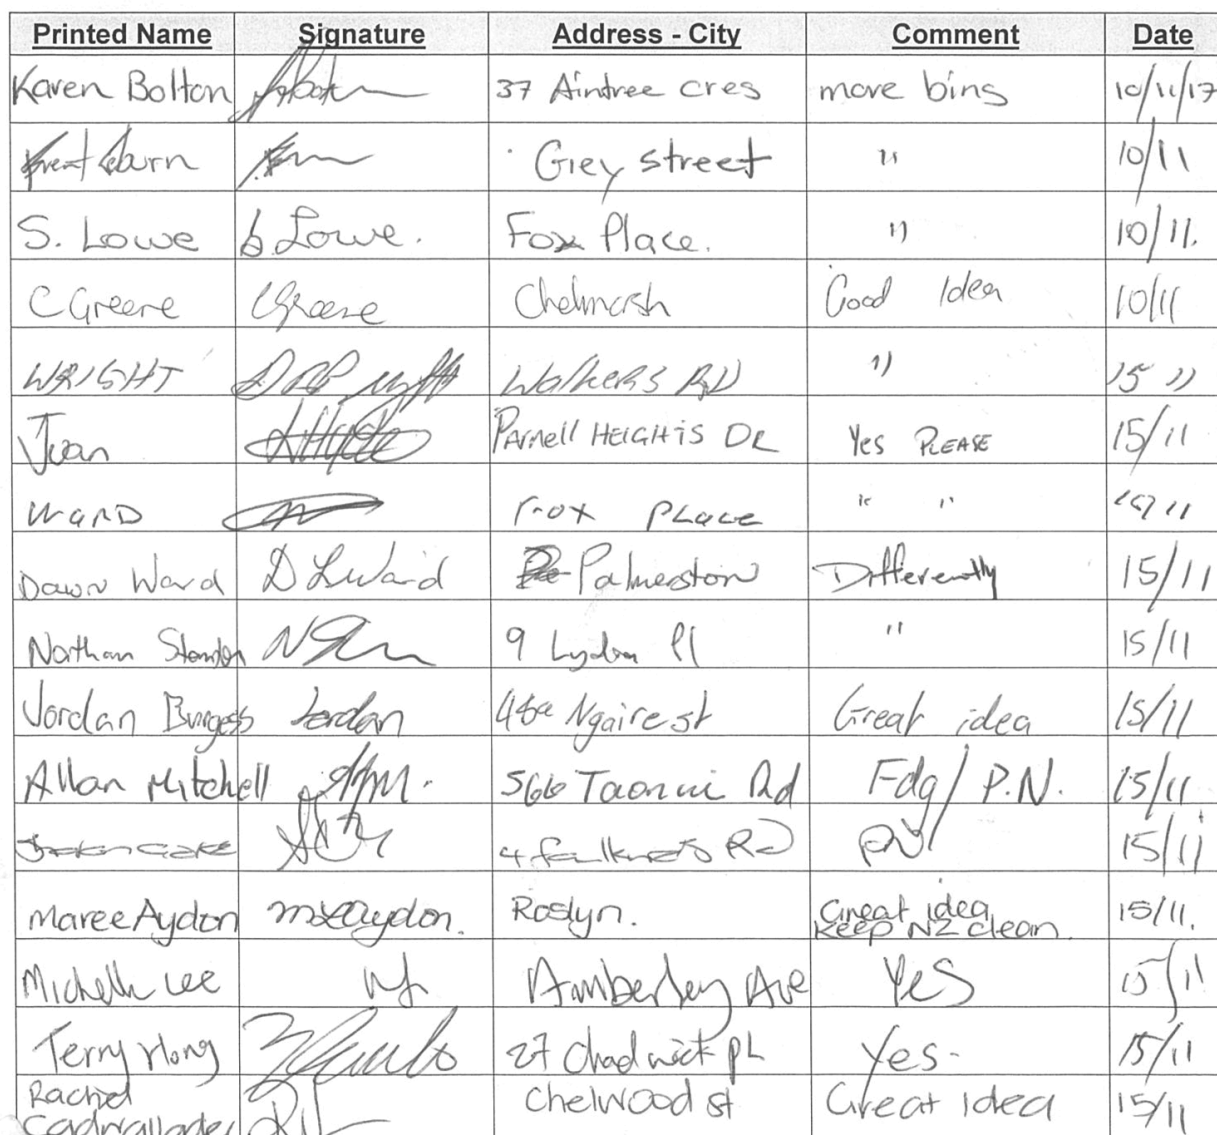 Printed Name Signature Address - City Comment Date
Karen Bolton 37 Aintree cres more bins 10/11/17
Grey street " 10/11
S. Lowe S. Lowe. Fox Place. " 10/11.
C Greene CGreene Chelmarsh Good Idea 10/11
WRIGHT Walkers RD " 15 11
Juan PARNell HEIGHTS DR Yes PLEASE 15/11
WARD Fox PLace " " 11
Dawn Ward D L Ward Palmerston Differently 15/11
Nathan 9 Pl " 15/11
Jordan Burgess Jordan Ngaire st Great idea 15/11
Allan Mitchell AJM. 566 Taonui Rd Fdg/P.N. 15/11
4 RD PN 15/11
Maree Aydon Aydon. Roslyn. Great idea
Keep NZ clean. 15/11.
Michelle Lee Amberley Ave Yes 15/11
Terry Hong 27 Chadwick PL Yes- 15/11
Rachel Chelwood st Great idea 15/11
Cadwallader